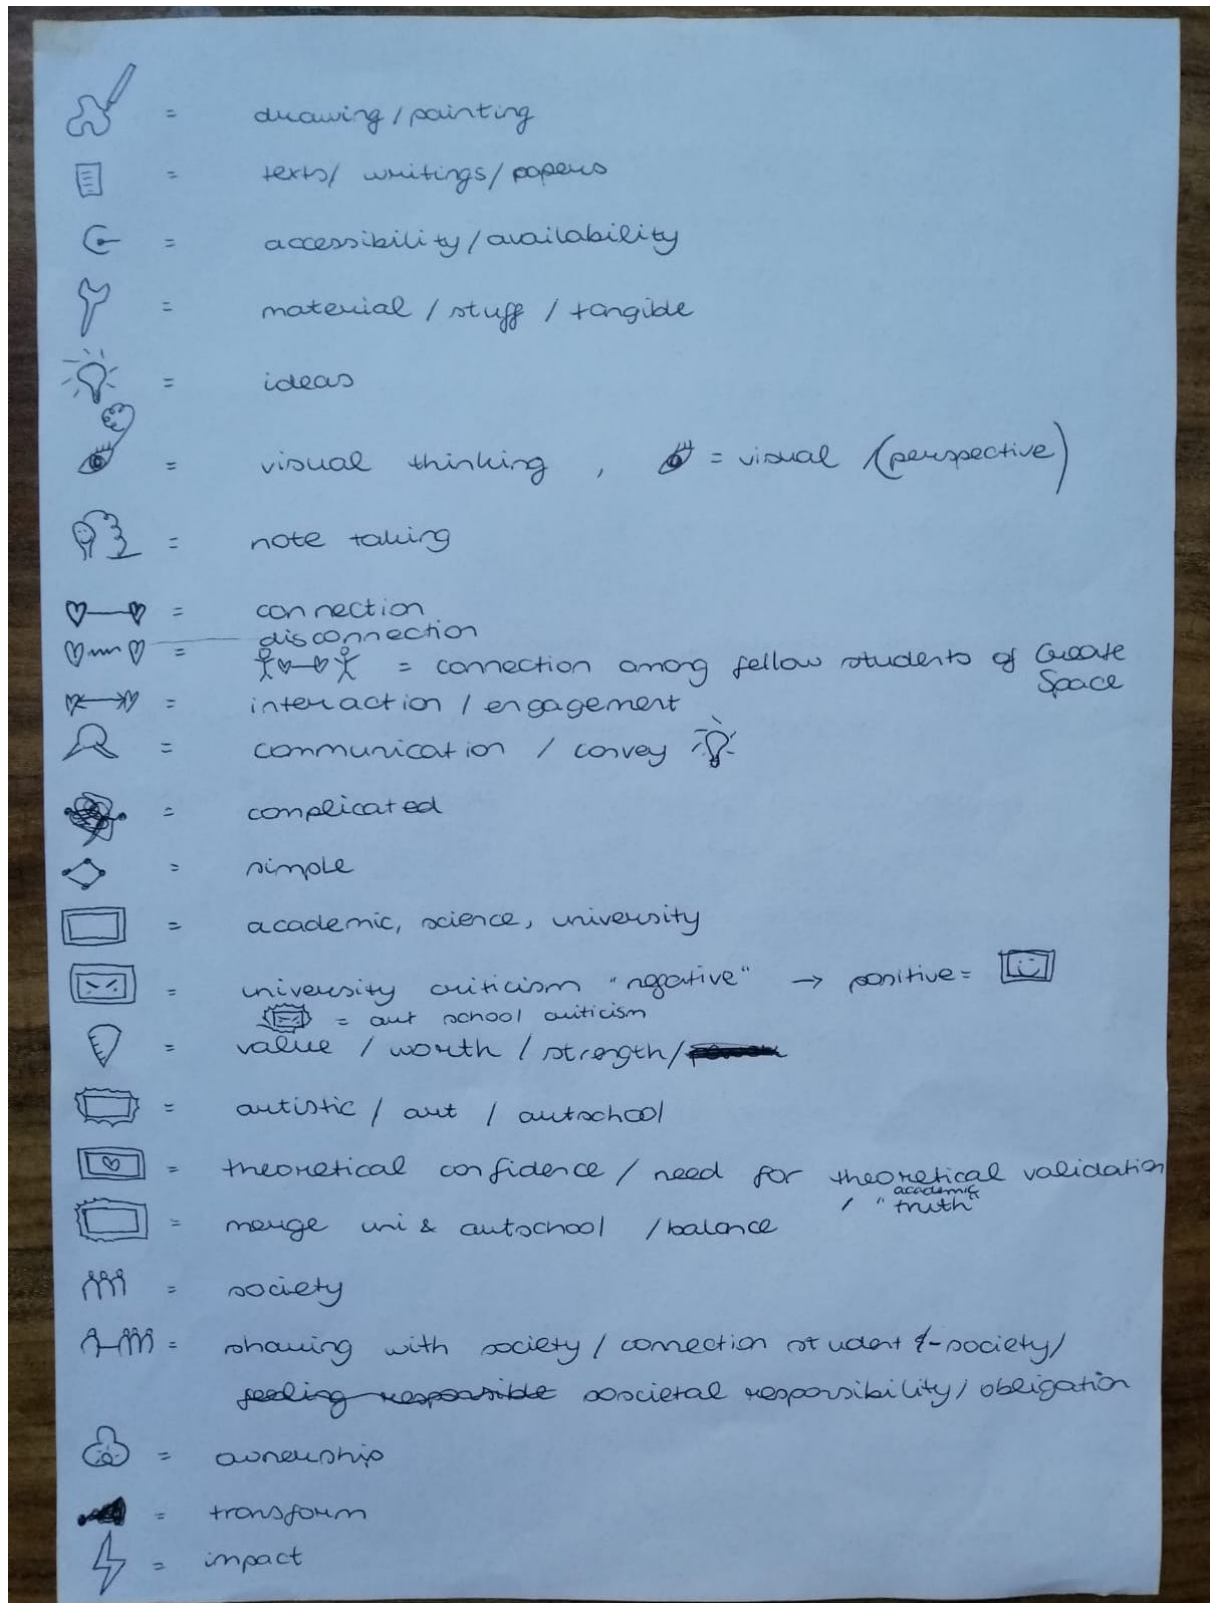 = drawing / painting
= texts / writings / papers
= accessibility / availability
= material / stuff / tangible
= ideas
= visual thinking , = visual /(perspective)
= note taking
= connection
= disconnection
= connection among fellow students of Create Space
= interaction / engagement
= communication / convey
= complicated
= simple
= academic, science, university
= university criticism "negative" → positive =
= art school criticism
= value / worth / strength /
= artistic / art / artschool
= theoretical confidence / need for theoretical validation
/ "academic truth"
= merge uni & artschool / balance
= society
= sharing with society / connection student &-society /
feeling responsible sosietal responsibility / obligation
= ownership
= transform
= impact